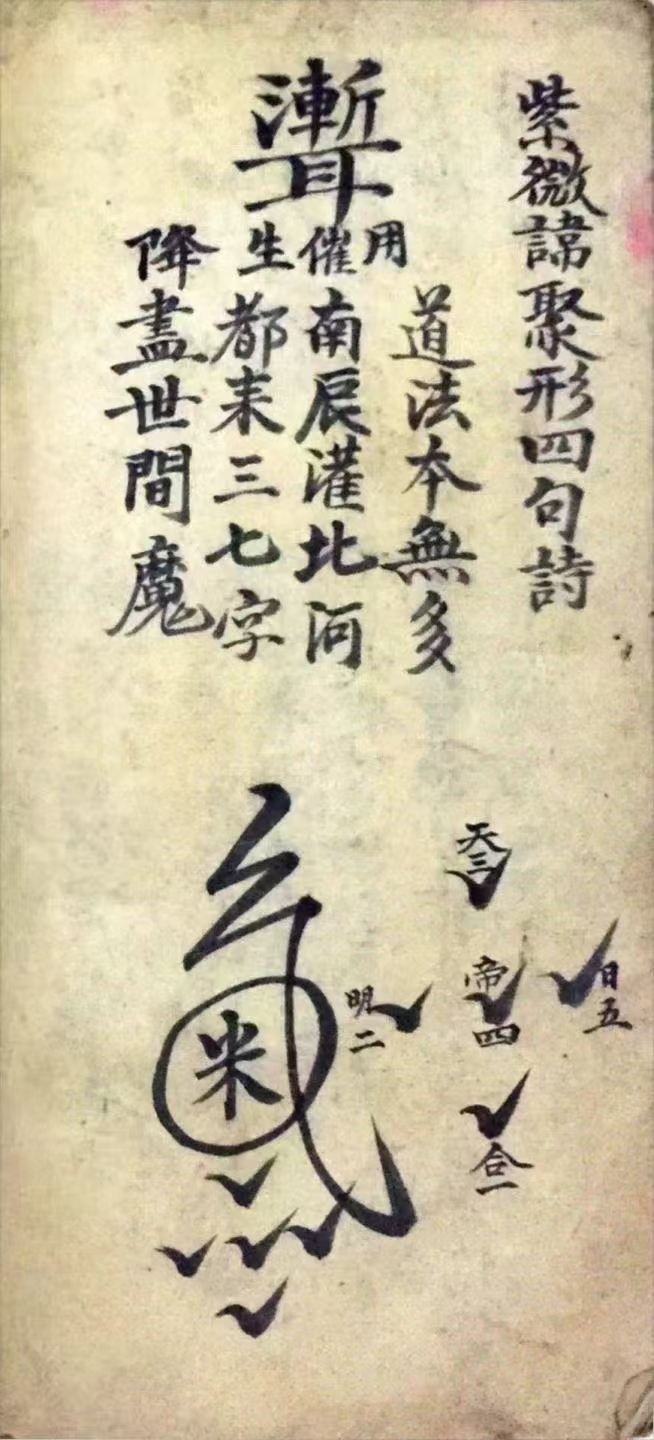 紫微諱聚形四句詩
用催生
道法本無多
南辰灌北河
都来三七字
降盡世間魔
日五
天三
帝四
合一
明二
米